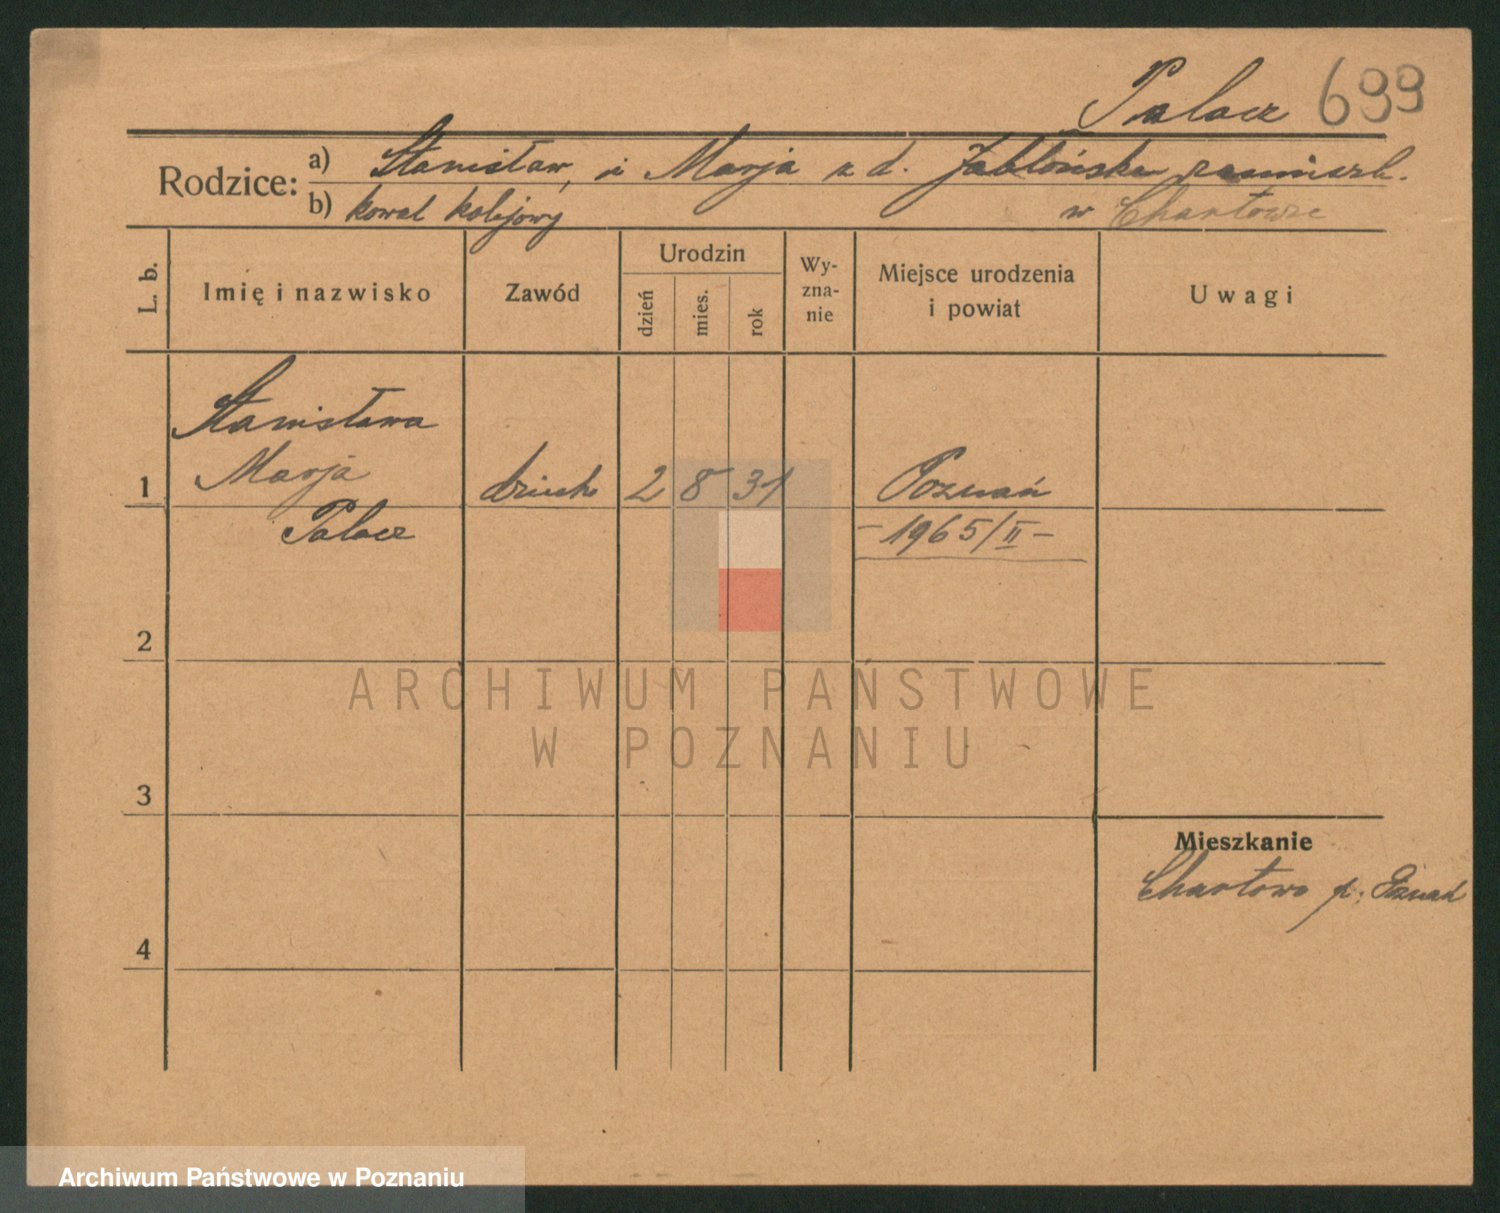 Palacz 699
Rodzice: a) Stanisław, i Marja z d. Jabłońska zamieszk.
b) kowal kolejowy w Chartowie
L. b.
Imię i nazwisko
Zawód
Urodzin
dzień
mies.
rok
Wy-
zna-
nie
Miejsce urodzenia
i powiat
Uwagi
Stanisława
Marja
1 dziecko 2 8 31 Poznań
Palacz – 1965/II –
2
ARCHIWUM PAŃSTWOWE
W POZNANIU
3
Mieszkanie
Chartowo p. Poznań
4
Archiwum Państwowe w Poznaniu